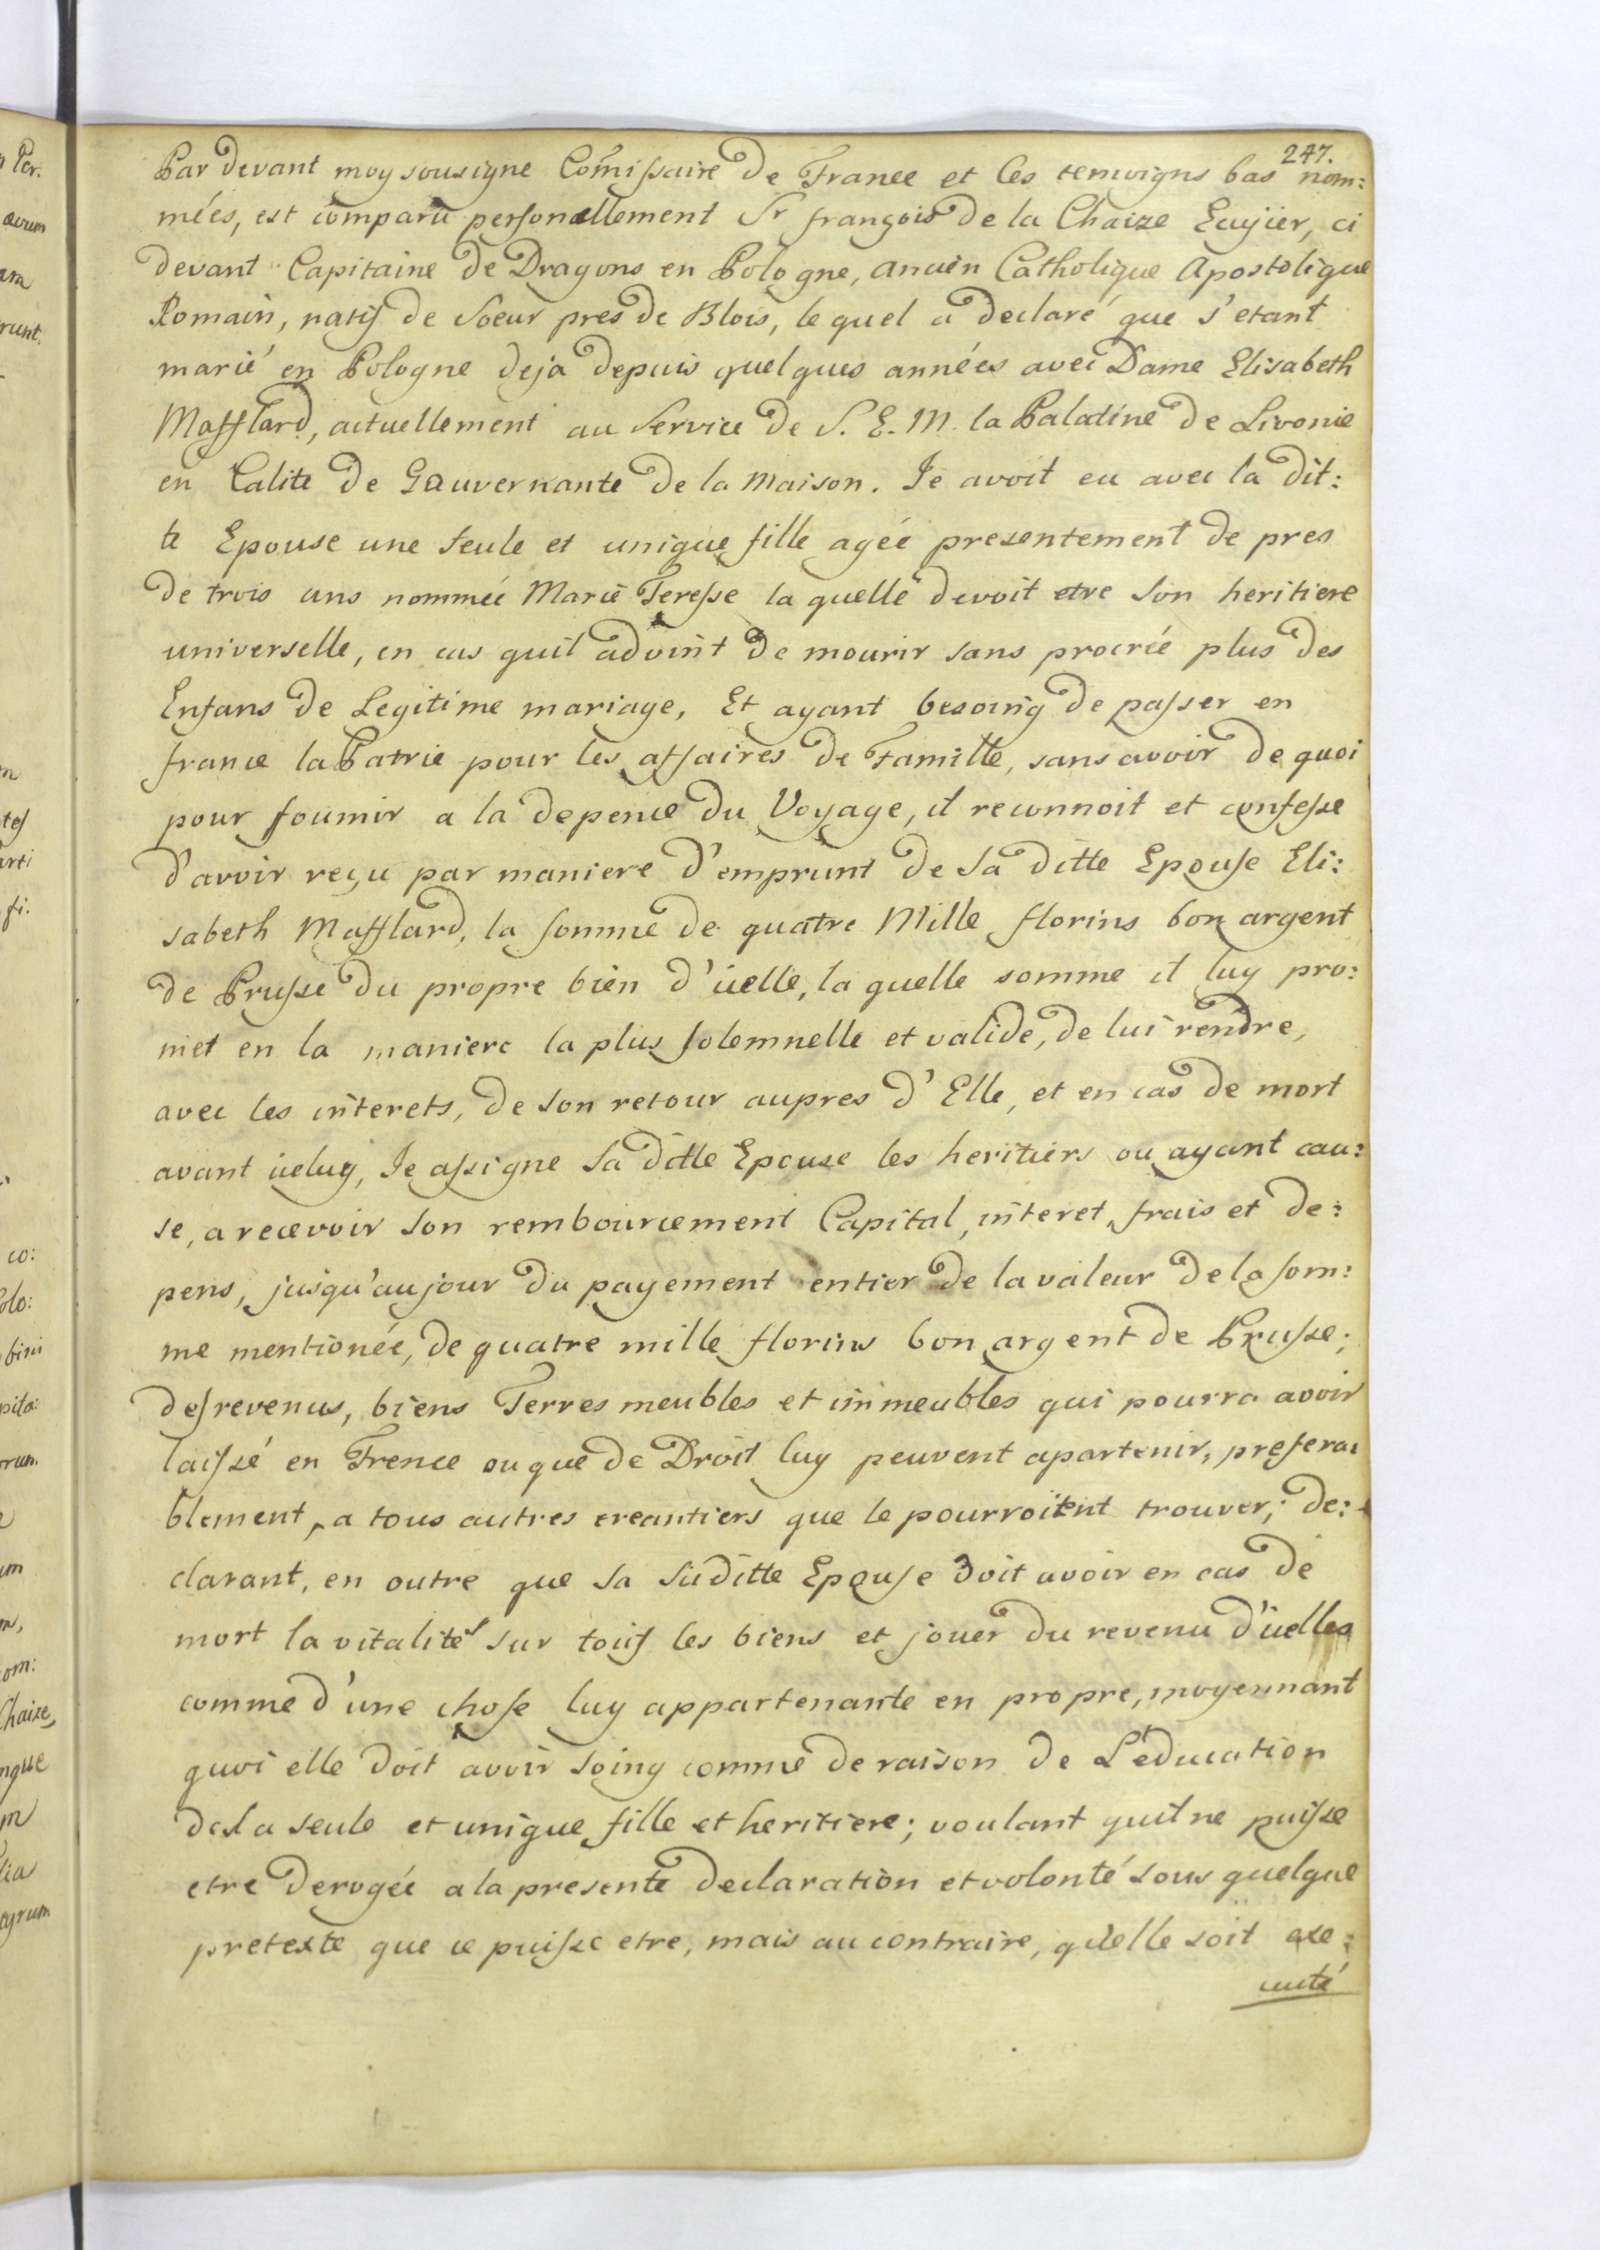 247.
Par devant moy sousigne Com̃issaire de France et les temoigns bas nom:
mées, est comparu personellement Sr françois de la Chaize Ecujier, ci
devant Capitaine de Dragons en Pologne, ancien Catholique Apostolique
Romain, natif de Soeur pres de Blois, le quel a declaré que s'etant
marié en Pologne deja depuis quelques années avec Dame Elisabeth
Mafflard, actuellement au Service de S. E. M. la Palatine de Livonie
en Calite de Gauvernante de la Maison. Je avoit eu avec la dit:
te Epouse une seule et unique fille agée presentement de pres
de trois ans nommée Marie Teresse la quelle devoit etre son heritiere
universelle, en cas quil advint de mourir sans procrée plus des
Enfans de Legitime mariage, Et ayant besoing de passer en
france la Patrie pour les affaires de Famille, sans avoir de quoi
pour fournir a la depence du Voyage, il reconnoit et confesse
d'avoir reçu par maniere d'emprunt de sa ditte Epouse Eli:
sabeth Mafflard, la somme de quatre Mille florins bon argent
de Prusse du propre bien d'icelle, la quelle somme il luy pro:
met en la maniere la plus solemnelle et valide, de lui rendre,
avec les interets, de son retour aupres d'Elle, et en cas de mort
avant iceluy, Je assigne sa ditte Epouse les heritiers ou ayant cau:
se, a recevoir son remboursement Capital, interet, frais et de:
pens, jusqu'au jour du payement entier de la valeur de la som:
me mentionée, de quatre mille florins bon argent de Prusse;
des revenus, biens Terres meubles et immeubles qui pourra avoir
laissé en Frence ou que de Droit luy peuvent apartenir, prefera:
blement, a tous autres creantiers que le pourroitent trouver; de:
clarant, en outre que sa suditte Epouse doit avoir en cas de
mort la vitalité sur tous les biens et jouer du revenu d'icelles
comme d'une chose luy appartenante en propre, moyennant
quoi elle doit avoir soing comme de raison de L'education
de la seule et unique fille et heritiere; voulant quil ne puisse
etre derogée a la presente declaration et volonté sous quelque
pretexte que ce puisse etre, mais au contraire, qu'elle soit exe:
cuté